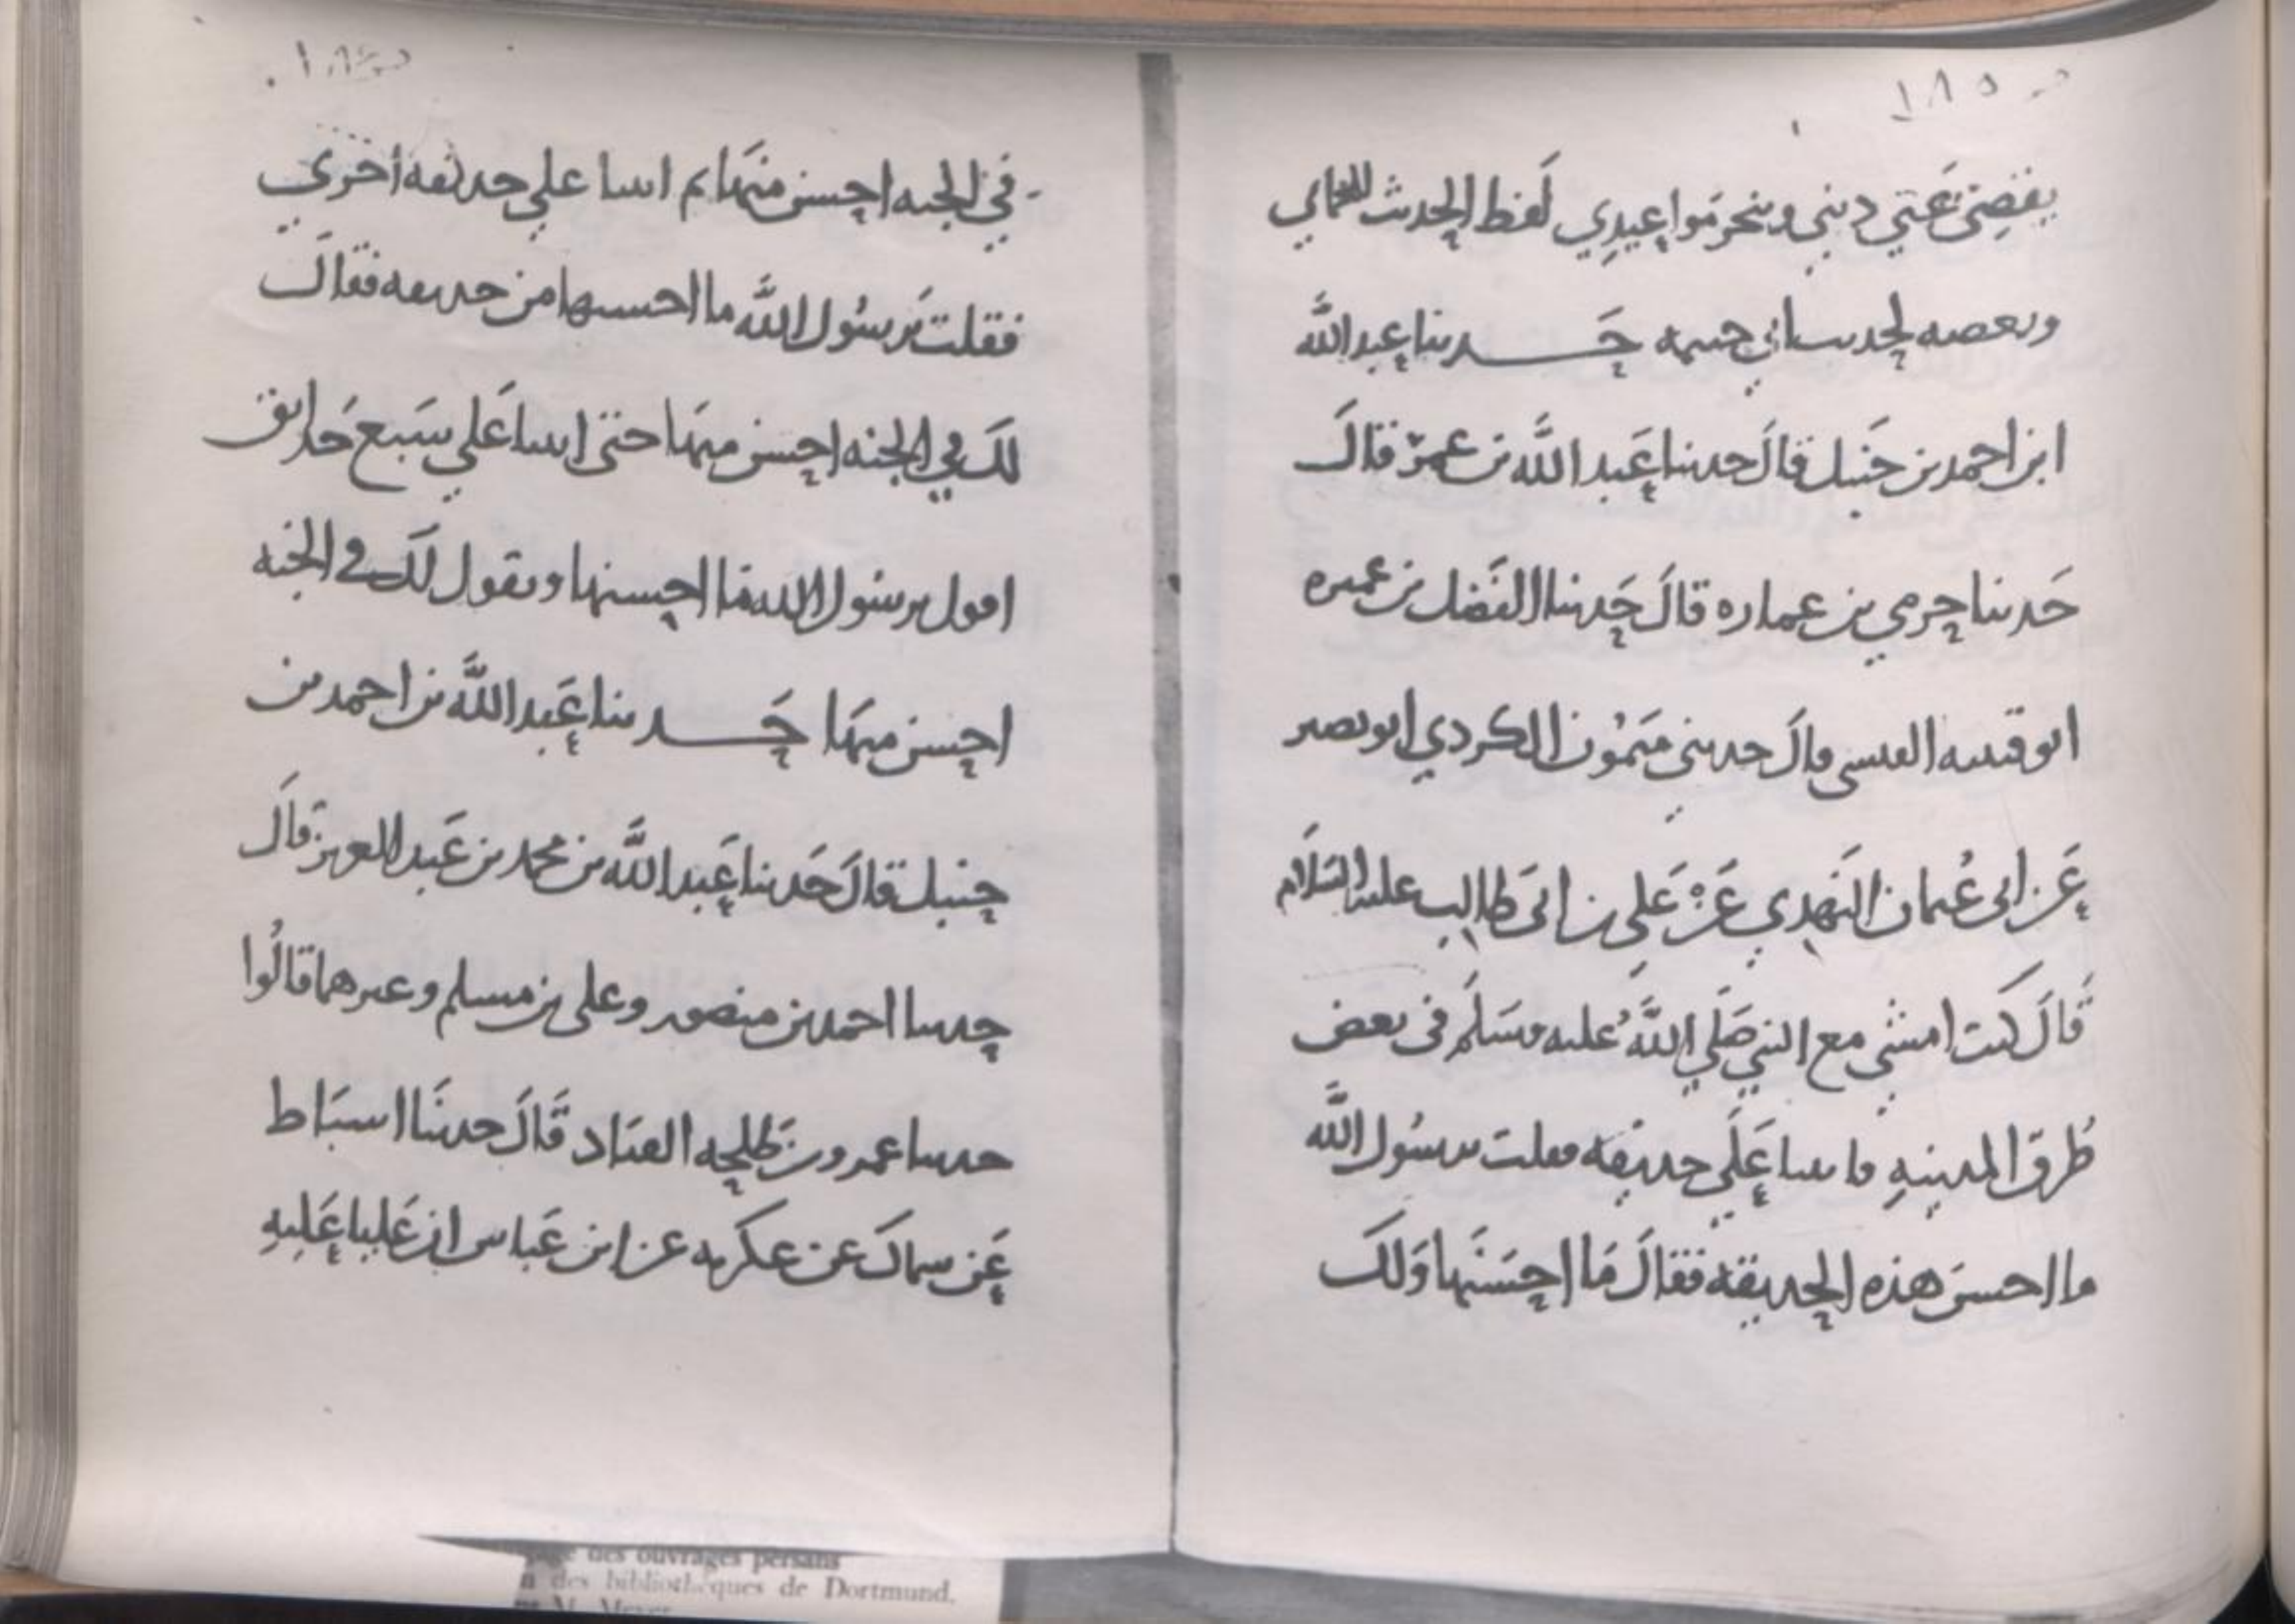 ١٨٥
يقضي عني ديني وينجز مواعيدي لفظ الحديث للحماني
وبعضه لحديث ابي خيثمه حدثنا عبد الله
ابن احمد بن حنبل قال حدثنا عبد الله بن عمر قال
حدثنا حرمي بن عماره قال حدثنا الفضل بن عميره
ابو قتيبه القيسي قال حدثني ميمون الكردي ابو نصير
عن ابي عثمان النهدي عن علي بن ابي طالب عليه السلام
قال كنت امشي مع النبي صلي الله عليه وسلم في بعض
طرق المدينه فاتينا علي حديقه فقلت يرسول الله
ما احسن هذه الحديقه فقال ما احسنها ولك
في الجنه احسن منها ثم اتينا علي حديقه أخري
فقلت يرسول الله ما احسنها من حديقه فقال
لك في الجنه احسن منها حتى اتينا علي سبع حدايق
اقول يرسول الله ما احسنها ويقول لك في الجنه
احسن منها حدثنا عبد الله بن احمد بن
حنبل قال حدثنا عبد الله بن محمد بن عبد العزيز قال
حدثنا احمد بن منصور وعلي بن مسلم وغيرهما قالوا
حدثنا عمرو بن طلحه القناد قال حدثنا اسباط
عن سماك عن عكرمه عن ابن عباس ان عليا عليه
des ouvrages persans
des bibliothèques de Dortmund.